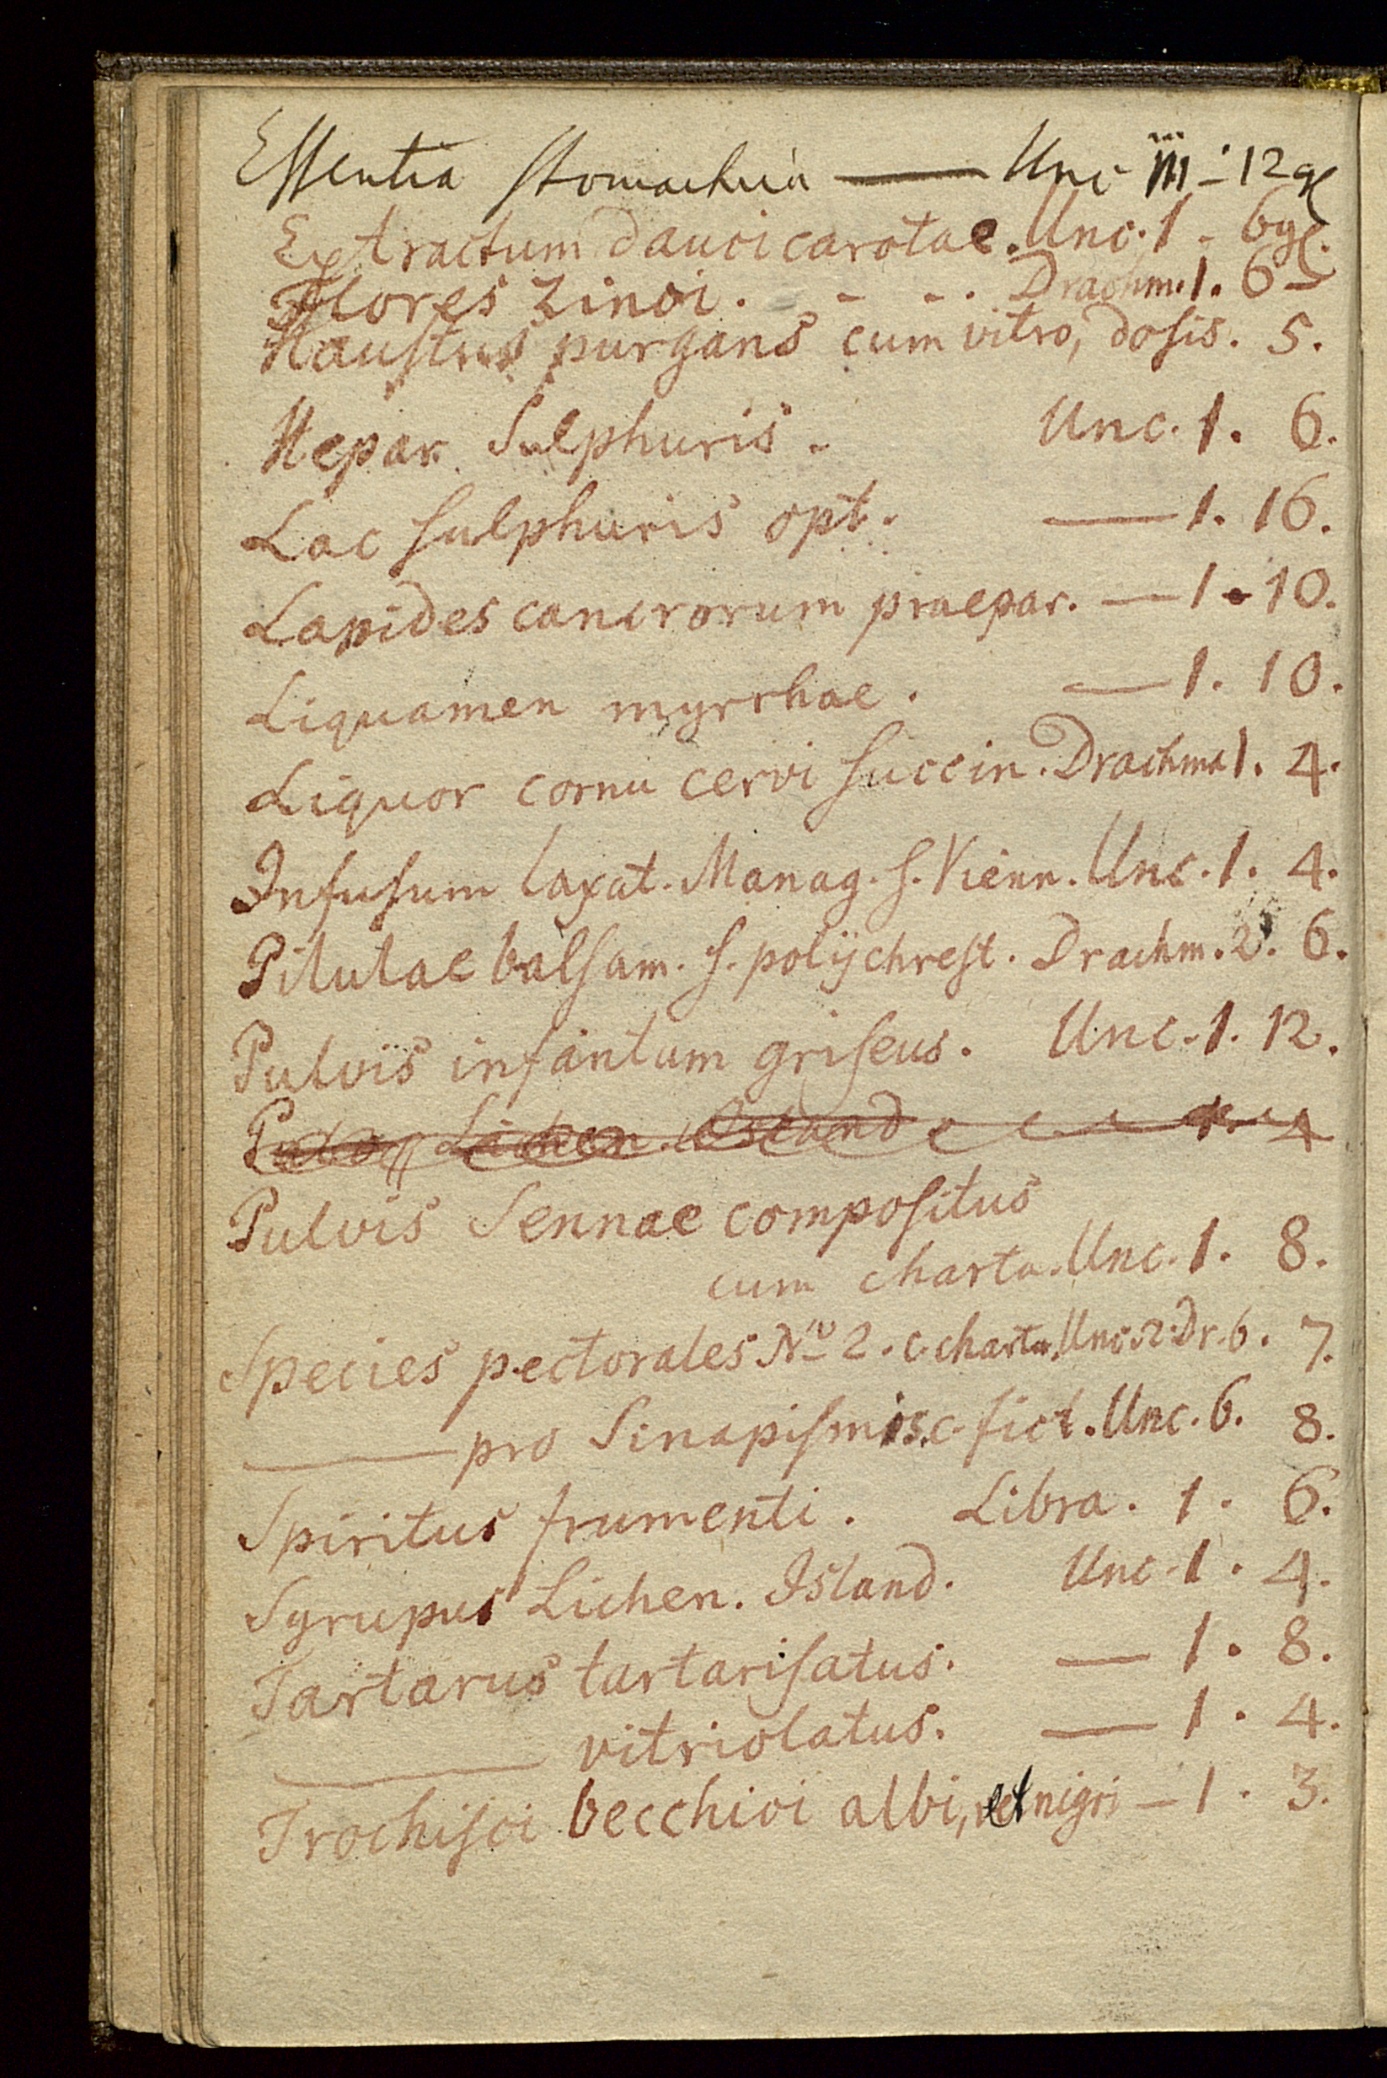 Essentia stomachica — Unc iii - 12 gl
Extractum dauci carotae. Unc. 1 - 6 gl.
Flores zinci. - - . Drachm. 1. 6 -
Haustus purgans cum vitro, dosis. 5.
Hepar Sulphuris. Unc. 1. 6.
Lac sulphuris opt. — 1. 16.
Lapides cancrorum praepar. — 1. 10.
Liquamen myrrhae. — 1. 10.
Liquor cornu cervi succin. Drachma 1. 4.
Infusum laxat. Manag. s. Vienn. Unc. 1. 4.
Pilulae balsam. s. polÿchrest. Drachm. 2. 6.
Pulvis infantum griseus. Unc. 1. 12.
Pulv Lichen Island 1. 4
Pulvis Sennae compositus
cum charta. Unc. 1. 8.
Species pectorales No 2. c. charta. Unc. 2. Dr. 6. 7.
— pro Sinapismis. c. fict. Unc. 6. 8.
Spiritus frumenti. Libra. 1. 6.
Syrupus Lichen. Island. Unc. 1. 4.
Tartarus tartarisatus. — 1. 8.
— vitriolatus. — 1. 4.
Trochisci becchici albi, et nigri — 1. 3.